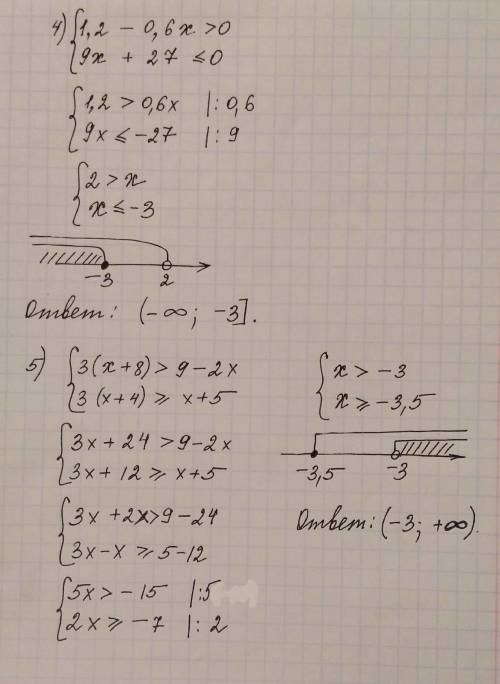 4) { 1,2 - 0,6x > 0
{ 9x + 27 ≤ 0
{ 1,2 > 0,6x |: 0,6
{ 9x ≤ -27 |: 9
{ 2 > x
{ x ≤ -3
-3 2
Ответ: (-∞; -3].
5) { 3(x+8) > 9-2x
{ 3(x+4) ≥ x+5
{ 3x+24 > 9-2x
{ 3x+12 ≥ x+5
{ 3x+2x > 9-24
{ 3x-x ≥ 5-12
{ 5x > -15 |:5
{ 2x ≥ -7 |: 2
{ x > -3
{ x ≥ -3,5
-3,5 -3
Ответ: (-3; +∞).